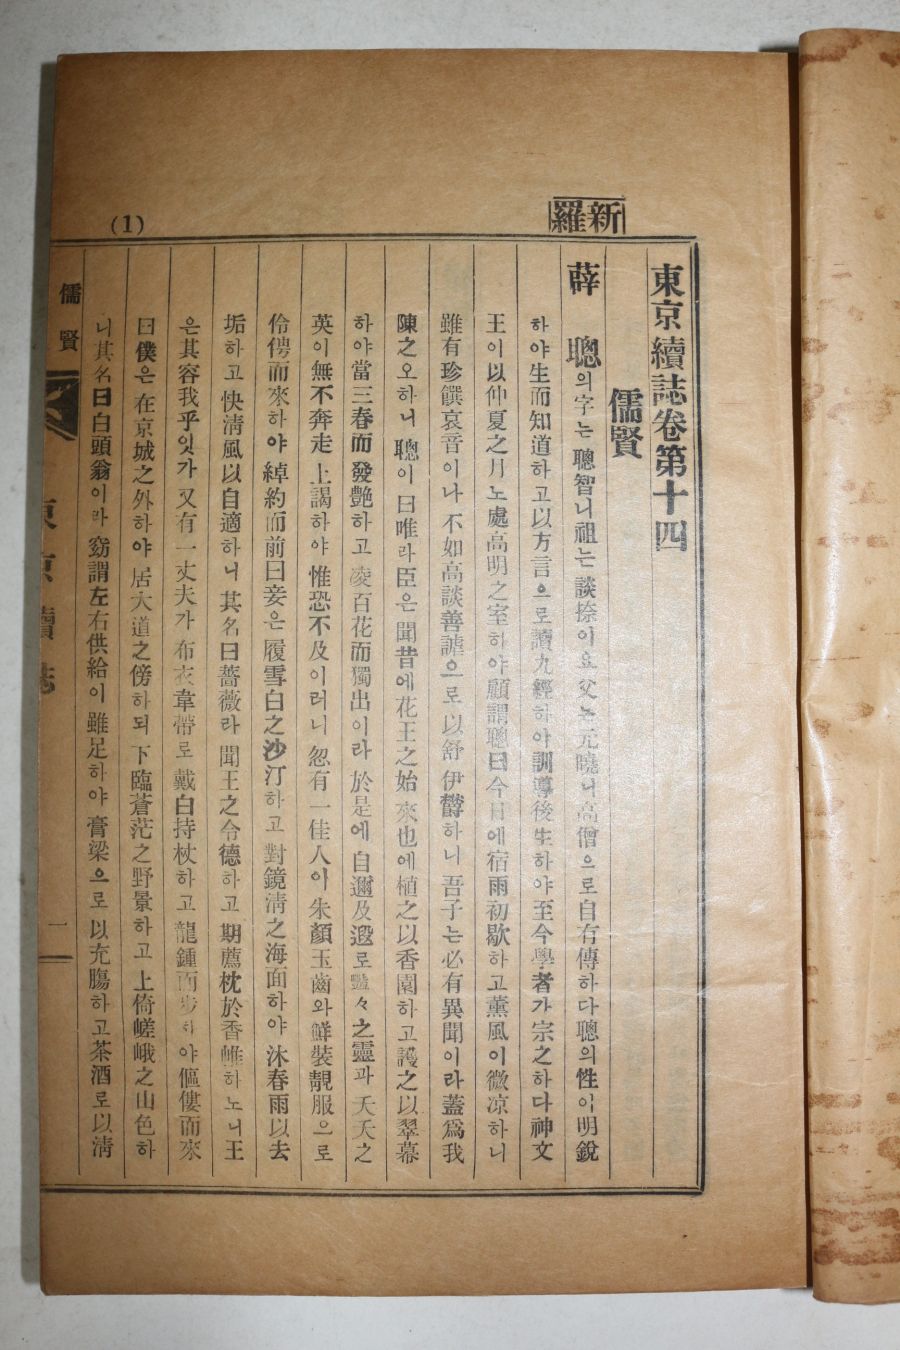 新羅
(1)
東京續誌卷第十四
儒賢
薛聰의字는聰智니祖는談捺이오父는元曉니高僧으로自有傳하다聰의性이明銳
하야生而知道하고以方言으로讀九經하야訓導後生하야至今學者가宗之하다神文
王이以仲夏之月노處高明之室하야顧謂聰曰今日에宿雨初歇하고薰風이微凉하니
雖有珍饌哀音이나不如高談善謔으로以舒伊鬱하니吾子는必有異聞이라蓋爲我
陳之오하니聰이曰唯라臣은聞昔에花王之始來也에植之以香園하고護之以翠幕
하야當三春而發艶하고凌百花而獨出이라於是에自邇及遐로豔々之靈과夭夭之
英이無不奔走上謁하야惟恐不及이러니忽有一佳人이朱顔玉齒와鮮裝靚服으로
伶俜而來하야綽約而前曰妾은履雪白之沙汀하고對鏡淸之海面하야沐春雨以去
垢하고快淸風以自適하니其名曰薔薇라聞王之令德하고期薦枕於香帷하노니王
은其容我乎잇가又有一丈夫가布衣韋帶로戴白持杖하고龍鍾而步하야傴僂而來
曰僕은在京城之外하야居大道之傍하되下臨蒼茫之野景하고上倚嵯峨之山色하
니其名曰白頭翁이라竊謂左右供給이雖足하야膏粱으로以充腸하고茶酒로以淸
儒賢
東京續誌
一